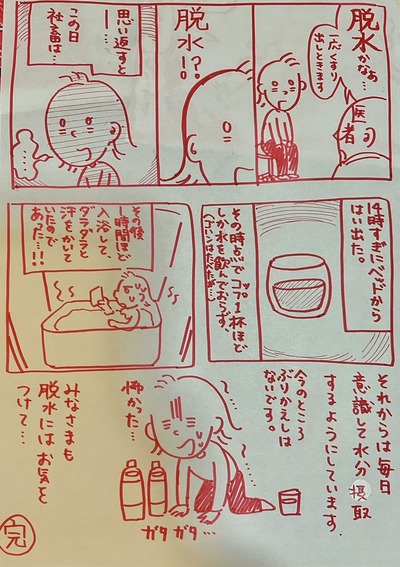 脱水かなぁ…
一応くすり
出しときます
医者
脱水?!
思い返すと
ー…
この日
社畜は…
14時すぎにベッドから
はい出た。
その時点でコップ1杯ほど
しか水を飲んでおらず、
(ゴハンはたべたが…)
その後
時間ほど
入浴して、
ダラダラと
汗をかいて
いたので
あった…!!
それからは毎日
意識して水分摂取
するようにしています。
今のところ
ぶりかえしは
ないです。
怖かった…
ガタガタ…
みなさまも
脱水にはお気を
つけて…
完